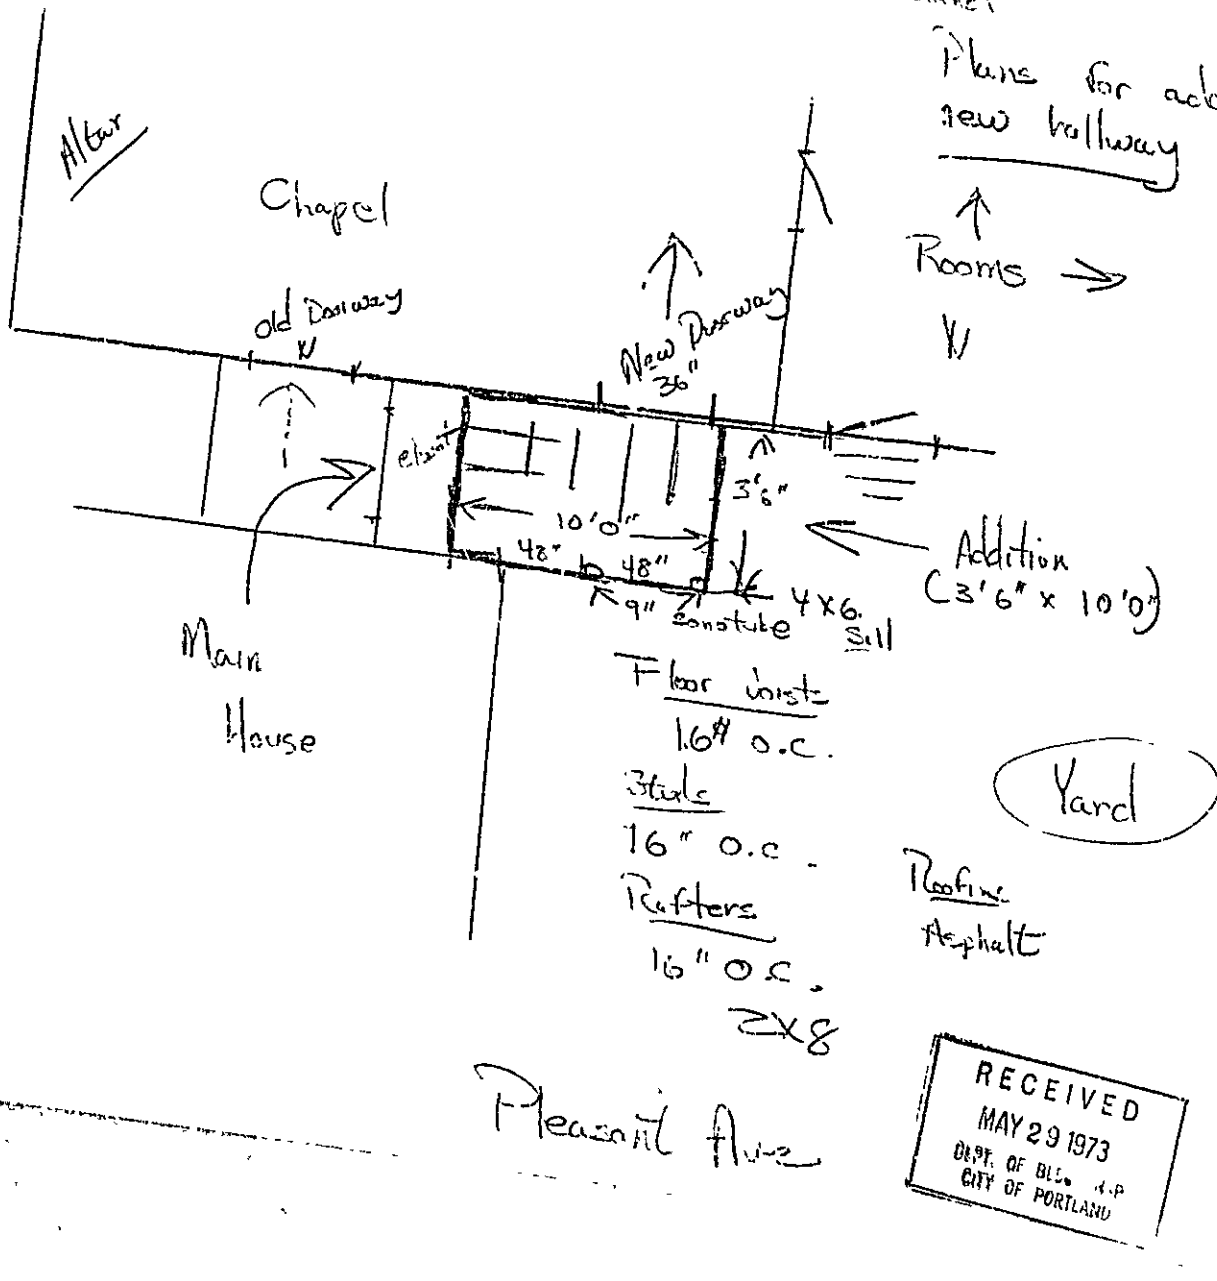 Plans for add
new hallway
Altar
Chapel
Rooms
Old Doorway
New Doorway
36"
3'6"
10'0"
48" 48"
9" Sonotube
4X6
Sill
Addition
(3'6" x 10'0")
Main
House
Floor Joists
16" O.C.
Studs
16" O.C.
Rafters
16" O.C.
2X8
Yard
Roofing
Asphalt
Pleasant Ave
RECEIVED
MAY 29 1973
DEPT. OF BLDG.
CITY OF PORTLAND